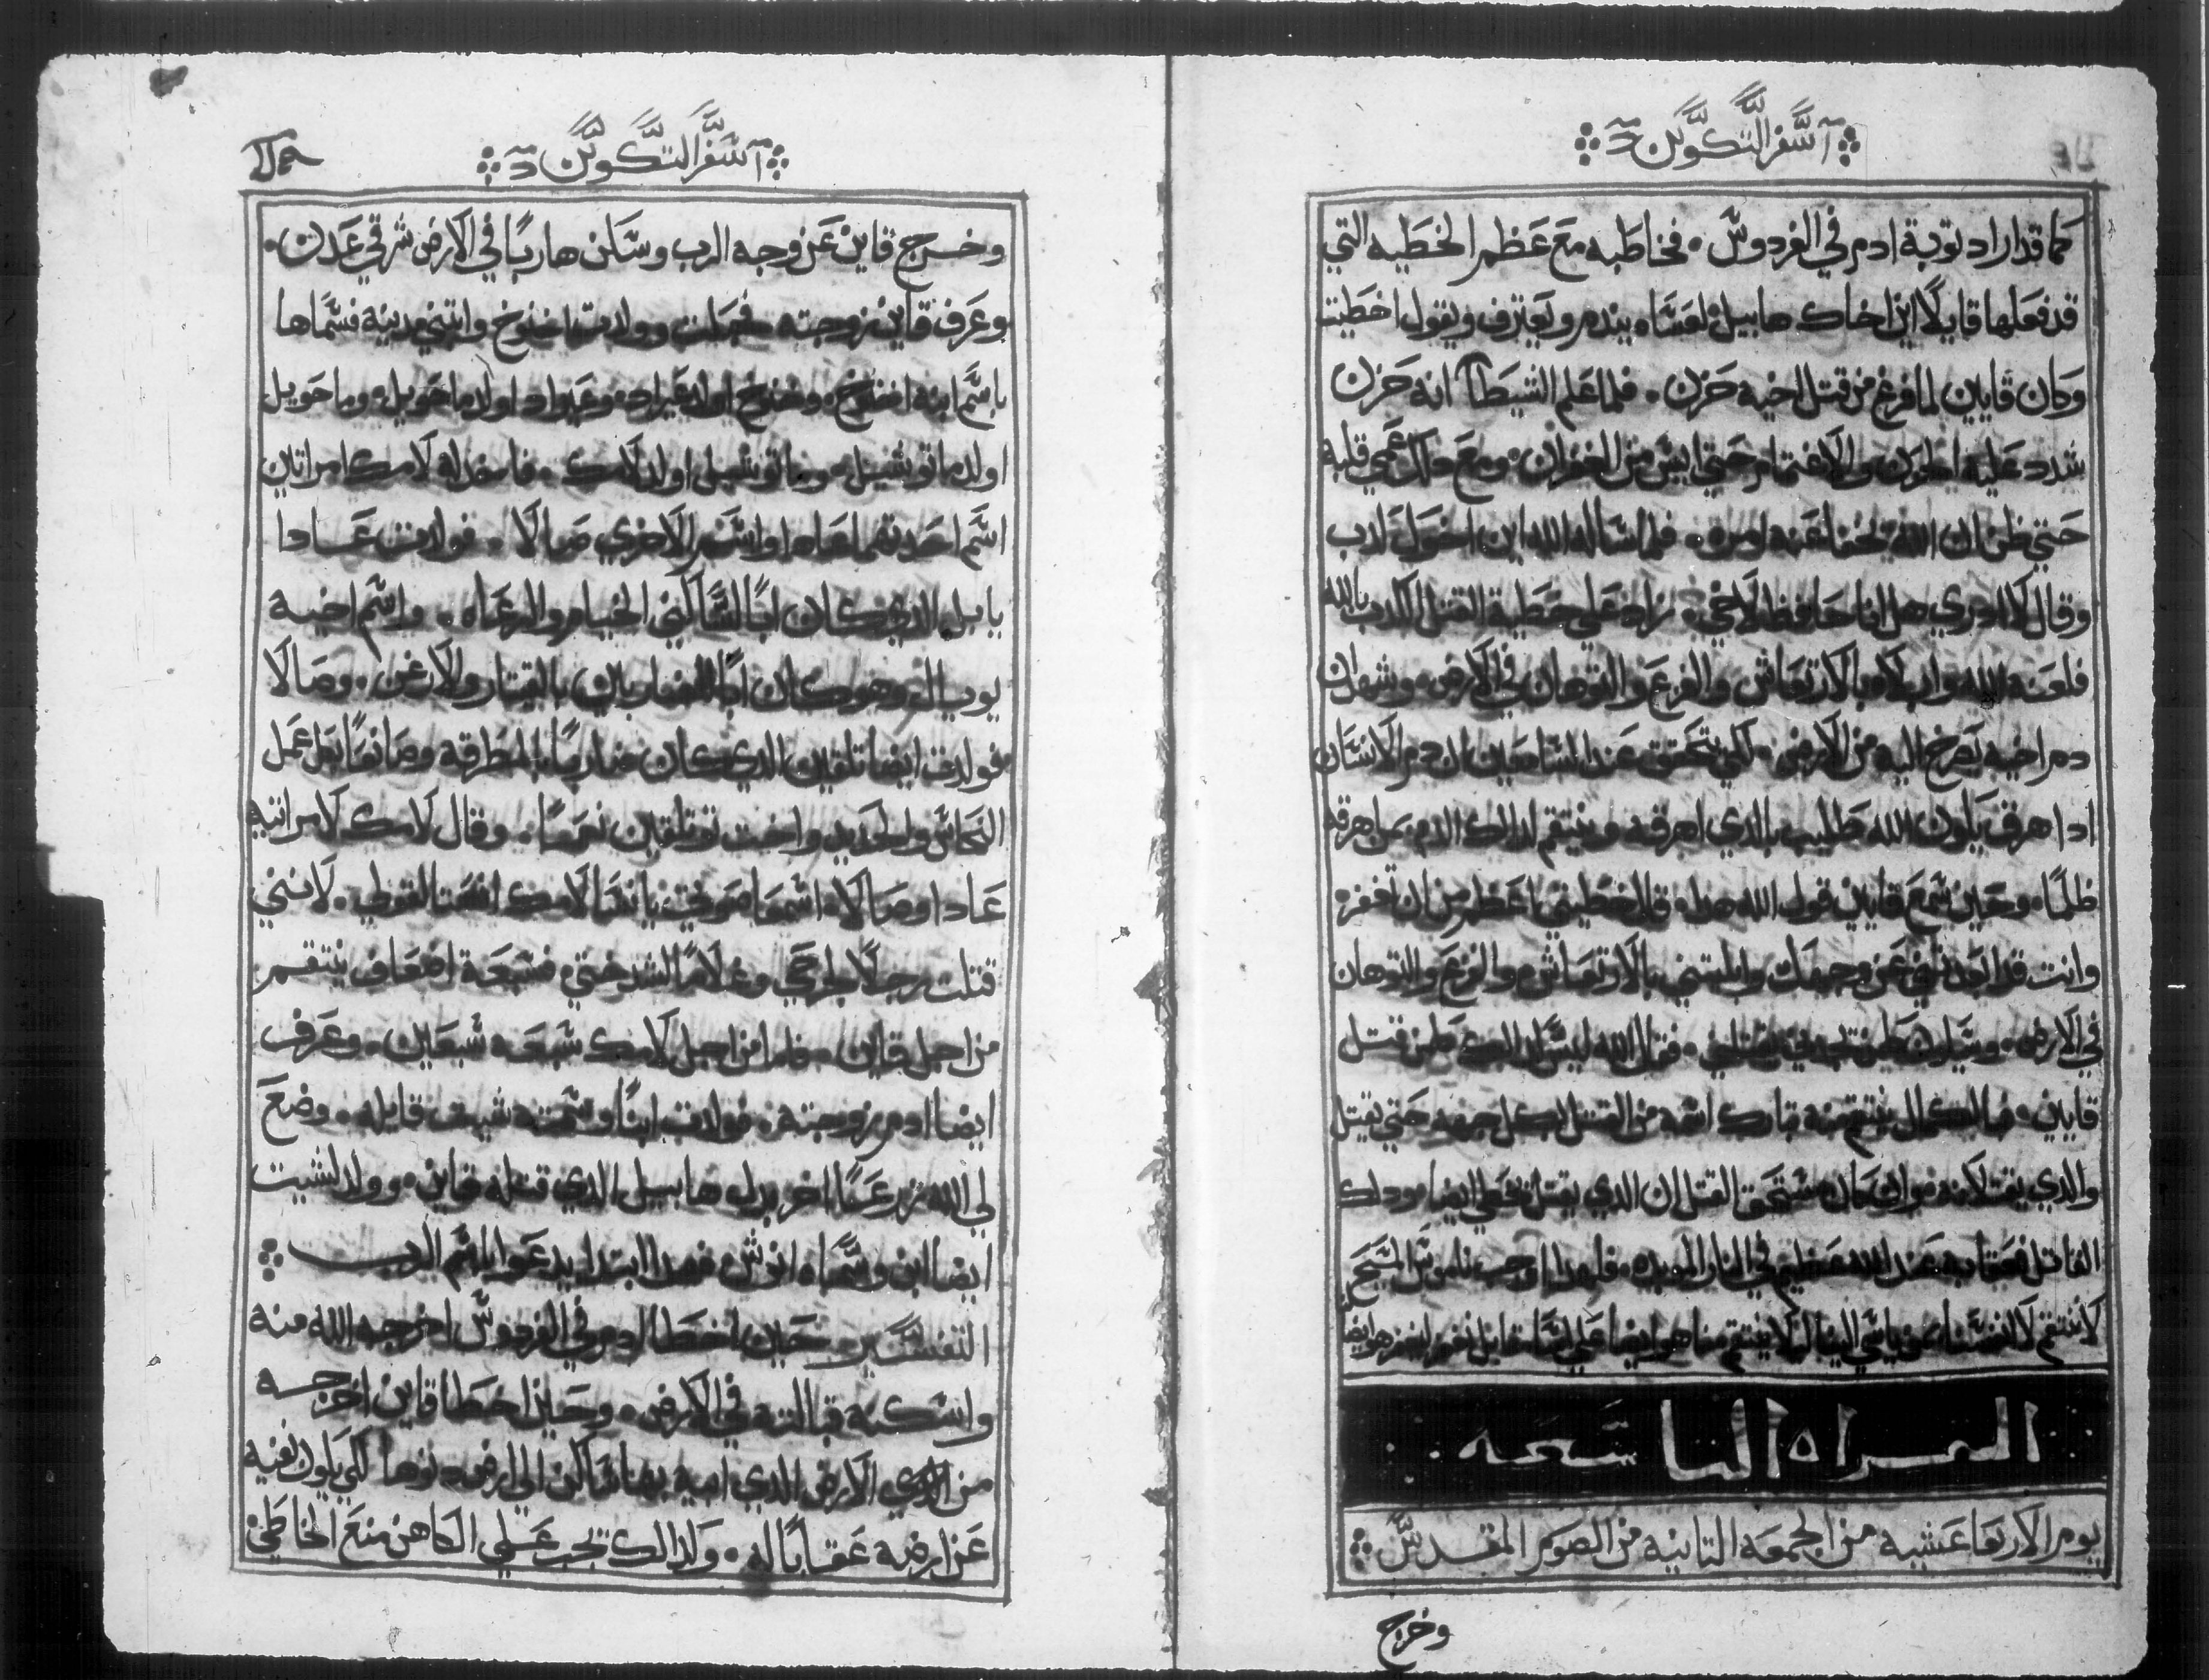 سفر التكوين
كما قد اراد توبة ادم في الفردوس. فخاطبه مع عظم الخطيه التي
قد فعلها قايلا اين اخاك هابيل لعساه يندم ويعترف ويقول اخطيت
وكان قايين لما فرغ من قتل اخيه حزن. فلما علم الشيطان انه حزن
شدد عليه الحزن والاغتمام حتي ايس من الغفران. ومع دلك عمي قلبه
حتي ظن ان الله تخفا عنه امره. فلما ساله الله اين اخوك كدب
وقال لا ادري هل انا حافظ لاخي. زاد علي خطية القتل الكدب بالله
فلعنه الله وابلاه بالارتعاش والفزع والتوهان في الارض. وشهد ان
دم اخيه يصرخ اليه من الارض. لكي يتحقق عند السامعين ان دم الانسان
ادا هرق يكون الله طليب بالدي اهرقه وينتقم لدالك الدم ممن اهرقه
ظلما. وحين سمع قايين قول الله هدا. قال خطيتي اعظم من ان تغفر.
وانت قد ابعدتني عن وجهك وابليتني بالارتعاش والفزع والتوهان
في الارض. وسيكون كلمن يجدني يقتلني. فقال الله ليس كدالك كلمن قتل
قايين. فبالكمال ينتقم منه تبارك اسمه من القتل لكل احد حتي يقتل
والدي يقتل لانه ولو ان كان مستحق القتل ان الدي يقتله يخطي ايضا ودلك
القاتل فعقابه عند الله عظيم في النار الموبده. فلهدا اوجب ناموس المسيح
لا ننتقم لانفسنا ممن ياسي الينا ليلا ينتقم منا هو ايضا علي اسا تنا بل نغفر ليغفر هو ايضا
القراه التاسعه
يوم الاربعا عشيه من الجمعه التانيه من الصوم المقدس
وخرج
سفر التكوين
وخرج قاين عن وجه الرب وسكن هاربا في الارض شرقي عدن.
وعرف قاين زوجته فحبلت وولدت اخنوخ وابتني مدينة فسماها
باسم ابنه اخنوخ. وخنوخ اولد عيراد. وعيراد اولد ماحويل. وماحويل
اولد ماتوشيل. وماتوشيل اولد لامك. فاتخد له لامك امراتين
اسم احدتهما عادا واسم الاخري صالا. فولدت عادا
يابل الدي كان ابا لساكني الخيام والرعاه. واسم اخيه
يوبال. وهو كان ابا للضاربين بالقيتار والارغن. وصالا
فولدت ايضا تلقين الدي كان ضاربا بالمطرقه وصانعا بكل عمل
النحاس والحديد واخت توتلقين نعما. وقال لامك لامراتيه
عادا وصالا. اسمعا صوتي يا نسا لامك انصتا لقولي. لانني
قتلت رجلا لجرحي وغلاما لشدختي. فسبعة اضعاف ينتقم
من اجل قاين. فاما من اجل لامك سبعه سبعين. وعرف
ايضا ادم زوجته. فولدت ابنا وسمته شيت قايله. وضع
لي الله زرعا اخر بدل هابيل الدي قتله قاين. وولد لشيت
ايضا ابن وسماه انوش فهدا ابتدا يدعوا باسم الرب
التفسير حين اخطا ادم في الفردوس اخرجه الله منه
واسكنه قبالته في الارض. وحين اخطا قاين اخرجه
من الارض الدي ابيه بها ساكن الي ارض نودا لكي يكون نفيه
عن ارضه عقابا له. ولدالك تجب علي الكاهن منع الخاطي